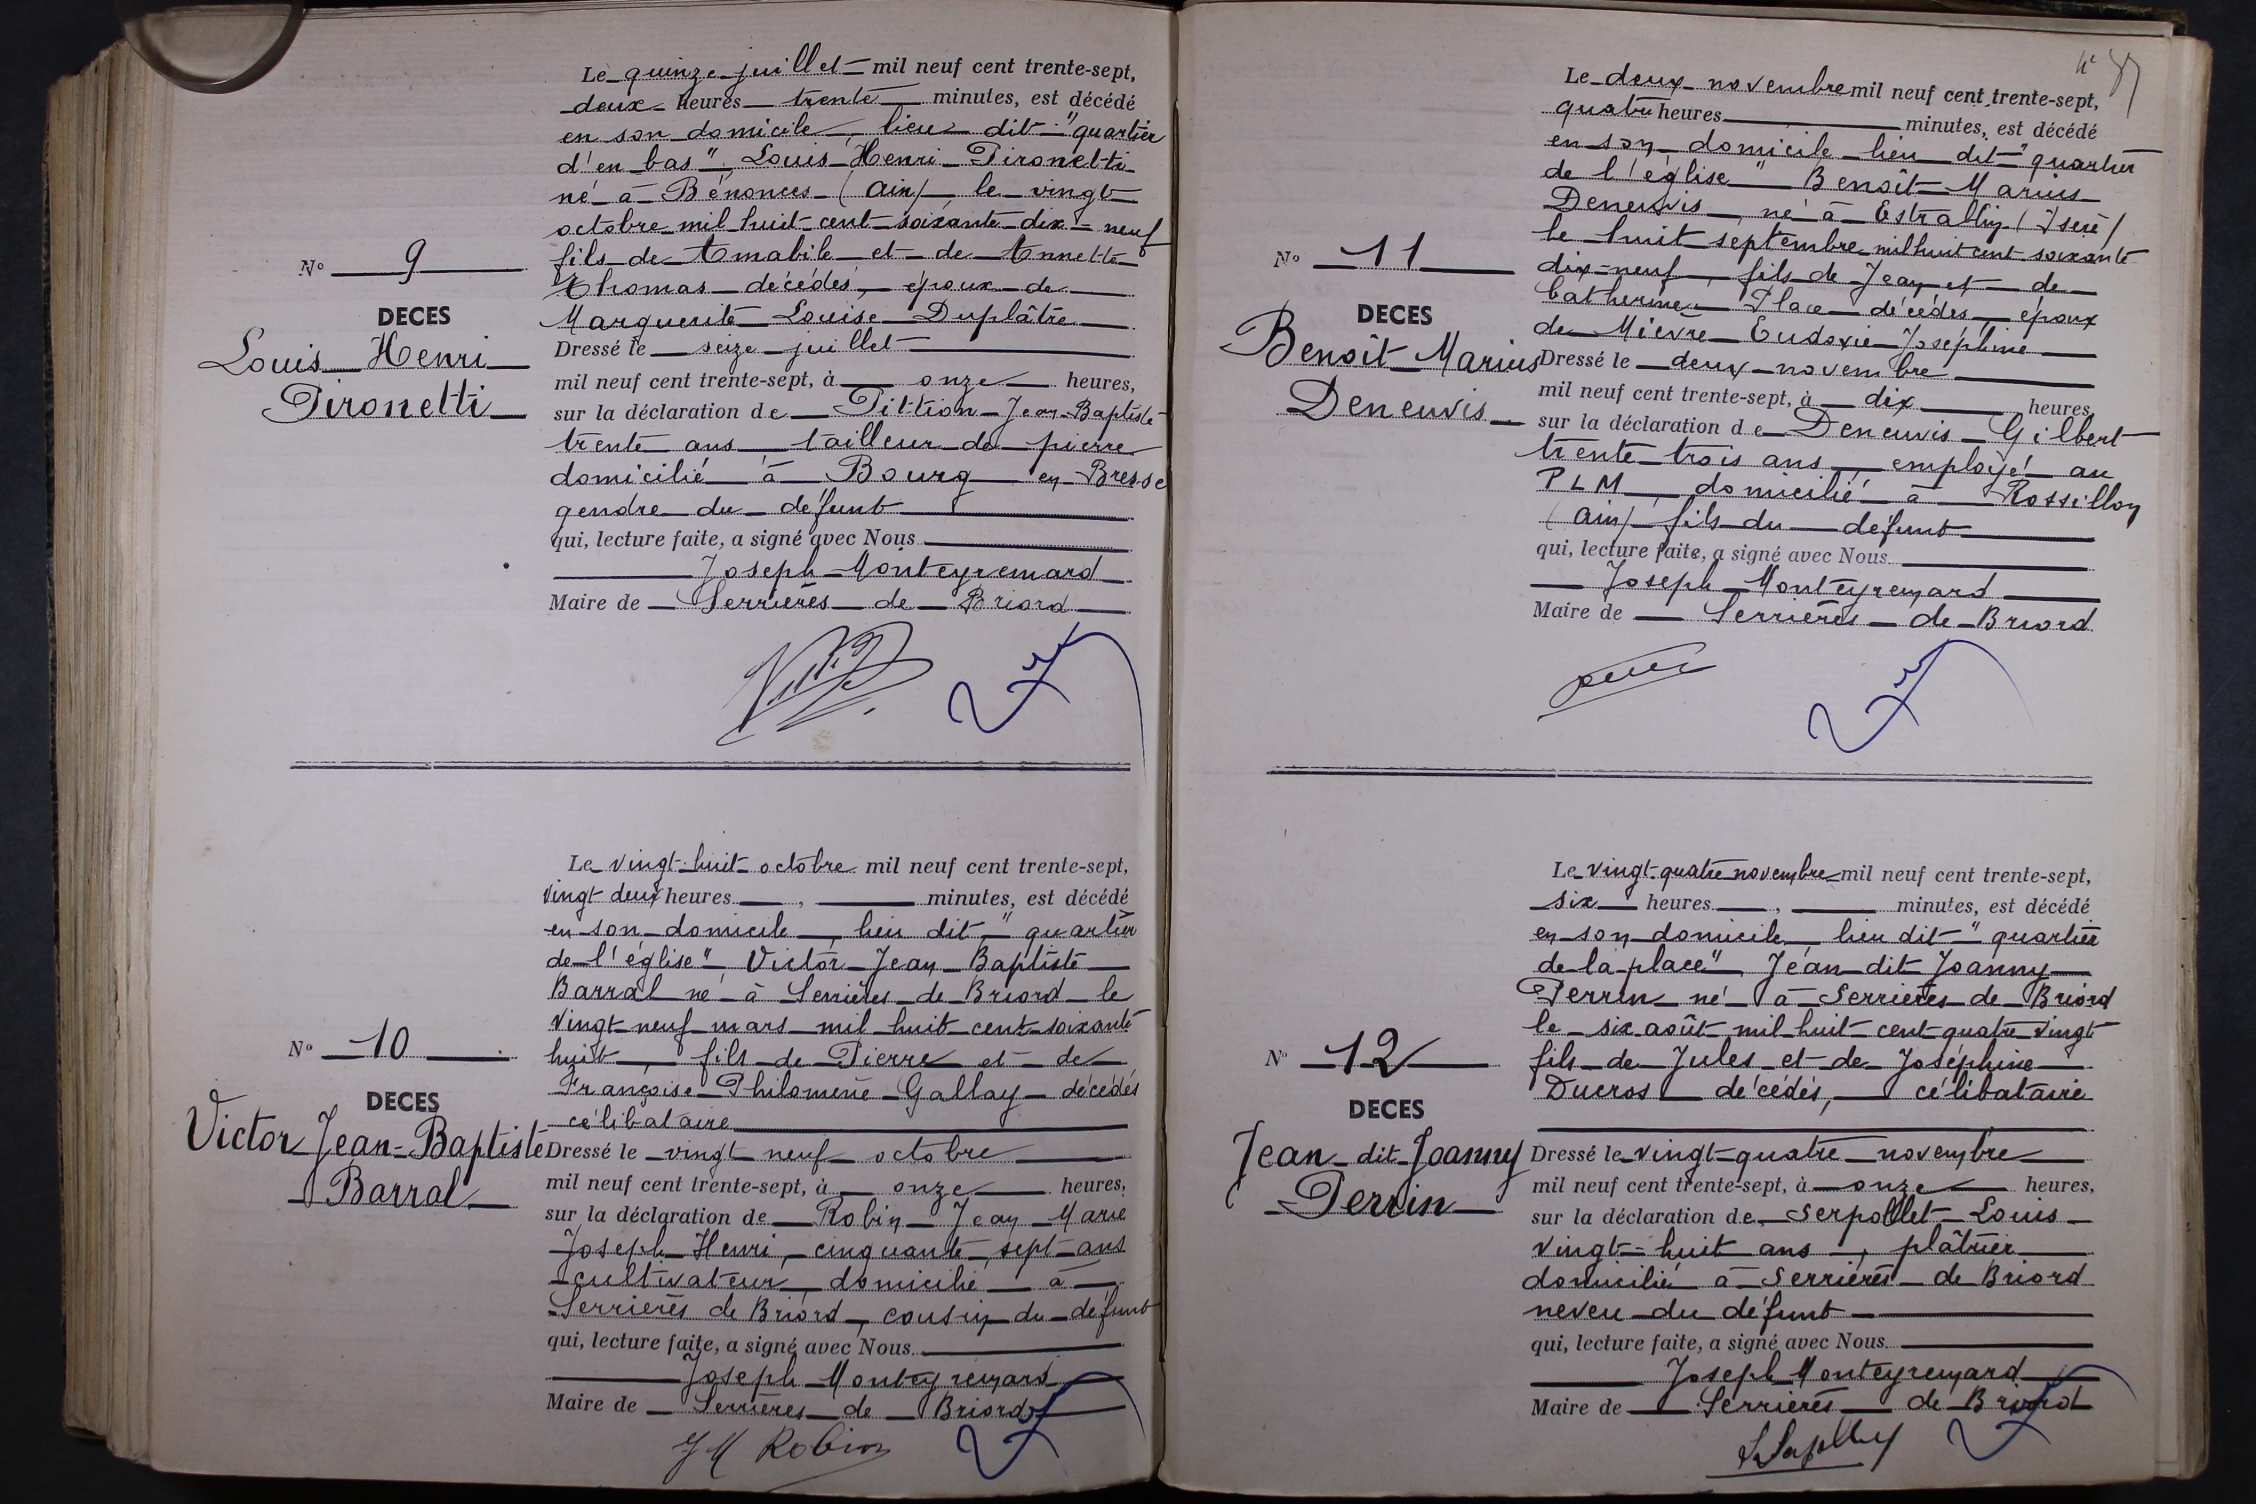 Le quinze juillet mil neuf cent trente-sept,
deux heures trente minutes, est décédé
en son domicile, lieu dit "quartier
d'en bas", Louis Henri Pironetti
né à Bénonces (Ain) le vingt
octobre mil huit cent soixante dix-neuf
fils de Amabile et de Annette
Thomas décédés, époux de
Marguerite Louise Duplâtre
Dressé le seize juillet
mil neuf cent trente-sept, à onze heures,
sur la déclaration de Pittion Jean-Baptiste
trente ans, tailleur de pierre
domicilié à Bourg en Bresse
gendre du défunt
qui, lecture faite, a signé avec Nous
Joseph Monteyremard
Maire de Serrières de Briord
No 9
DECES
Louis Henri
Pironetti
Le vingt-huit octobre mil neuf cent trente-sept,
vingt deux heures, minutes, est décédé
en son domicile, lieu dit "quartier
de l'église" Victor Jean Baptiste
Barral né à Serrières de Briord le
vingt neuf mars mil huit cent soixante
huit, fils de Pierre et de
Françoise Philomène Gallay décédés
célibataire
Dressé le vingt neuf octobre
mil neuf cent trente-sept, à onze heures,
sur la déclaration de Robin Jean Marie
Joseph Henri, cinquante sept ans
cultivateur, domicilié à
Serrières de Briord, cousin du défunt
qui, lecture faite, a signé avec Nous
Joseph Monteyremard
Maire de Serrières de Briord
J M Robin
No 10
DECES
Victor Jean-Baptiste
Barral
Le deux novembre mil neuf cent trente-sept,
quatre heures minutes, est décédé
en son domicile lieu dit "quartier
de l'église" Benoît Marius
Deneuvis, né à Estrablin (Isère)
le huit septembre mil huit cent soixante
dix-neuf, fils de Jean et de
Catherine Place décédés, époux
de Mièvre Eudoxie Joséphine
Dressé le deux novembre
mil neuf cent trente-sept, à dix heures,
sur la déclaration de Deneuvis Gilbert
trente trois ans, employé au
PLM, domicilié à Rossillon
(Ain) fils du défunt
qui, lecture faite, a signé avec Nous
Joseph Monteyremard
Maire de Serrières de Briord
No 11
DECES
Benoît Marius
Deneuvis
Le vingt-quatre novembre mil neuf cent trente-sept,
six heures, minutes, est décédé
en son domicile, lieu dit "quartier
de la place" Jean dit Joanny
Perrin né à Serrières de Briord
le six août mil huit cent quatre vingt
fils de Jules et de Joséphine
Ducros décédés, célibataire
Dressé le vingt-quatre novembre
mil neuf cent trente-sept, à onze heures,
sur la déclaration de Serpollet Louis
vingt-huit ans, plâtrier
domicilié à Serrières de Briord
neveu du défunt
qui, lecture faite, a signé avec Nous
Joseph Monteyremard
Maire de Serrières de Briord
No 12
DECES
Jean dit Joanny
Perrin